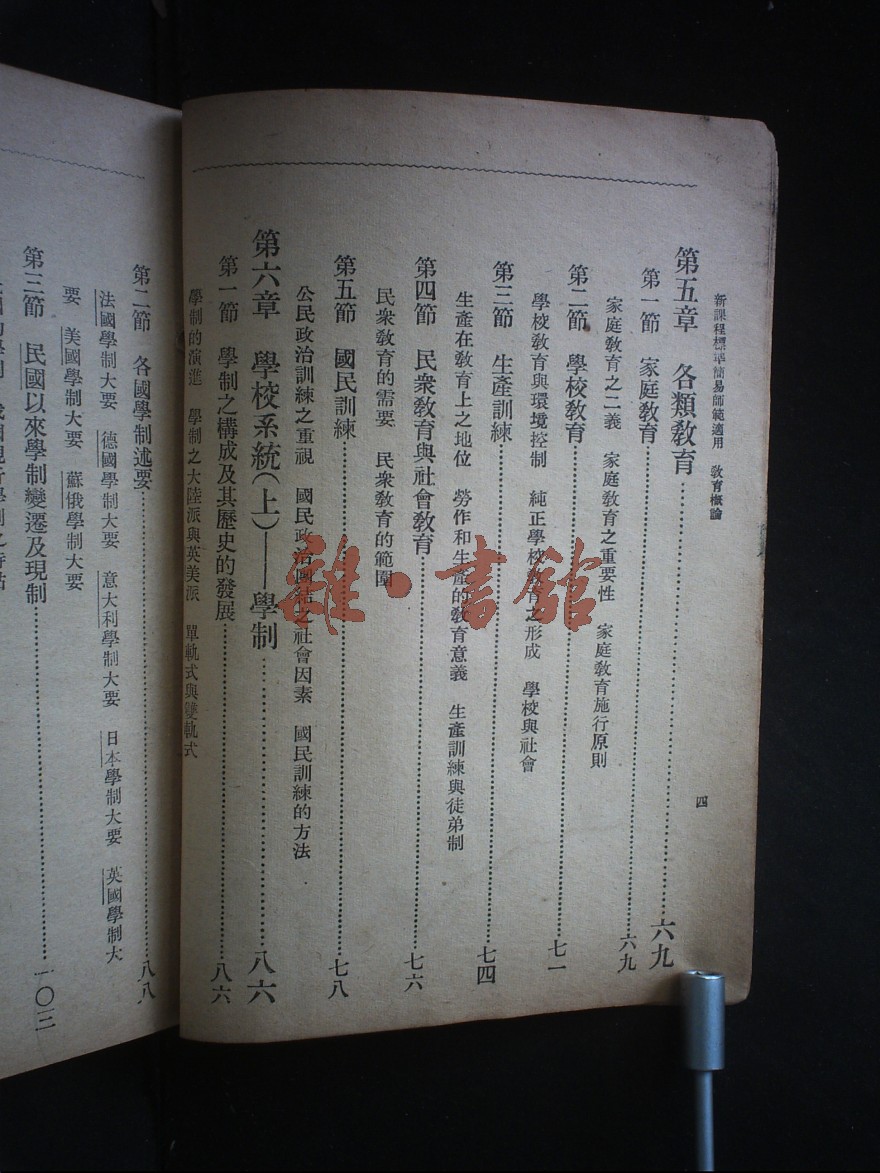 新課程標準簡易師範適用　教育概論
四
第五章　各類教育……六九
第一節　家庭教育……六九
家庭教育之二義　家庭教育之重要性　家庭教育施行原則
第二節　學校教育……七一
學校教育與環境控制　純正學校教育之形成　學校與社會
第三節　生產訓練……七四
生產在教育上之地位　勞作和生產的教育意義　生產訓練與徒弟制
第四節　民衆教育與社會教育……七六
民衆教育的需要　民衆教育的範圍
第五節　國民訓練……七八
公民政治訓練之重視　國民政治團結之社會因素　國民訓練的方法
第六章　學校系統(上)——學制……八六
第一節　學制之構成及其歷史的發展……八六
學制的演進　學制之大陸派與英美派　單軌式與雙軌式
第二節　各國學制述要……八八
法國學制大要　德國學制大要　意大利學制大要　日本學制大要　英國學制大
要　美國學制大要　蘇俄學制大要
第三節　民國以來學制變遷及現制……一〇三
雜·書館